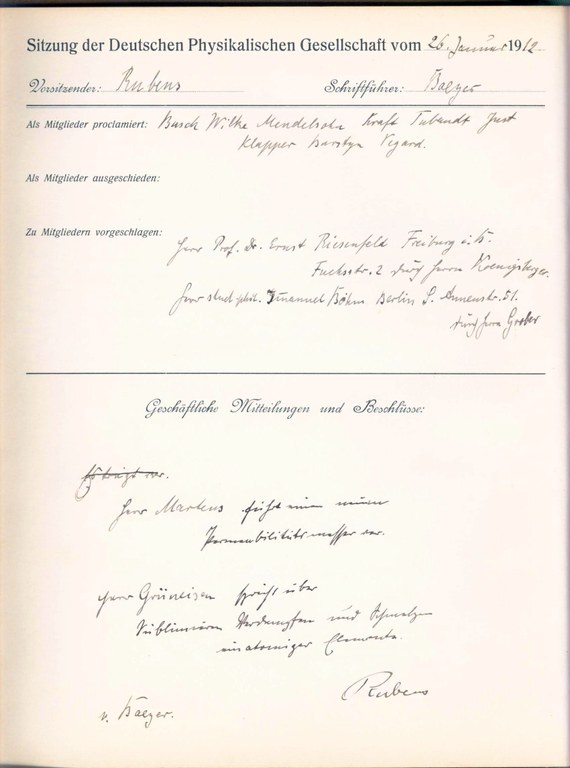 Sitzung der Deutschen Physikalischen Gesellschaft vom 26. Januar 1912
Vorsitzender: Rubens Schriftführer: Baeyer
Als Mitglieder proclamiert: Busch Wilke Mendelsohn Kraft Tubandt Just
Klapper Barstyn Vegard.
Als Mitglieder ausgeschieden:
Zu Mitgliedern vorgeschlagen:
Herr Prof. Dr. Ernst Riesenfeld Freiburg i. B.
Fuchsstr. 2 durch Herrn Koenigsberger.
Herr stud. phil. Immanuel Böhm Berlin S. Annenstr. 51.
durch Herrn
Geschäftliche Mitteilungen und Beschlüsse:
Es trägt vor.
Herr Martens führt einen neuen
Permeabilitätsmesser vor.
Herr Grüneisen spricht über
Sublimieren Verdampfen und Schmelzen
einatomiger Elemente.
Rubens
v. Baeyer.